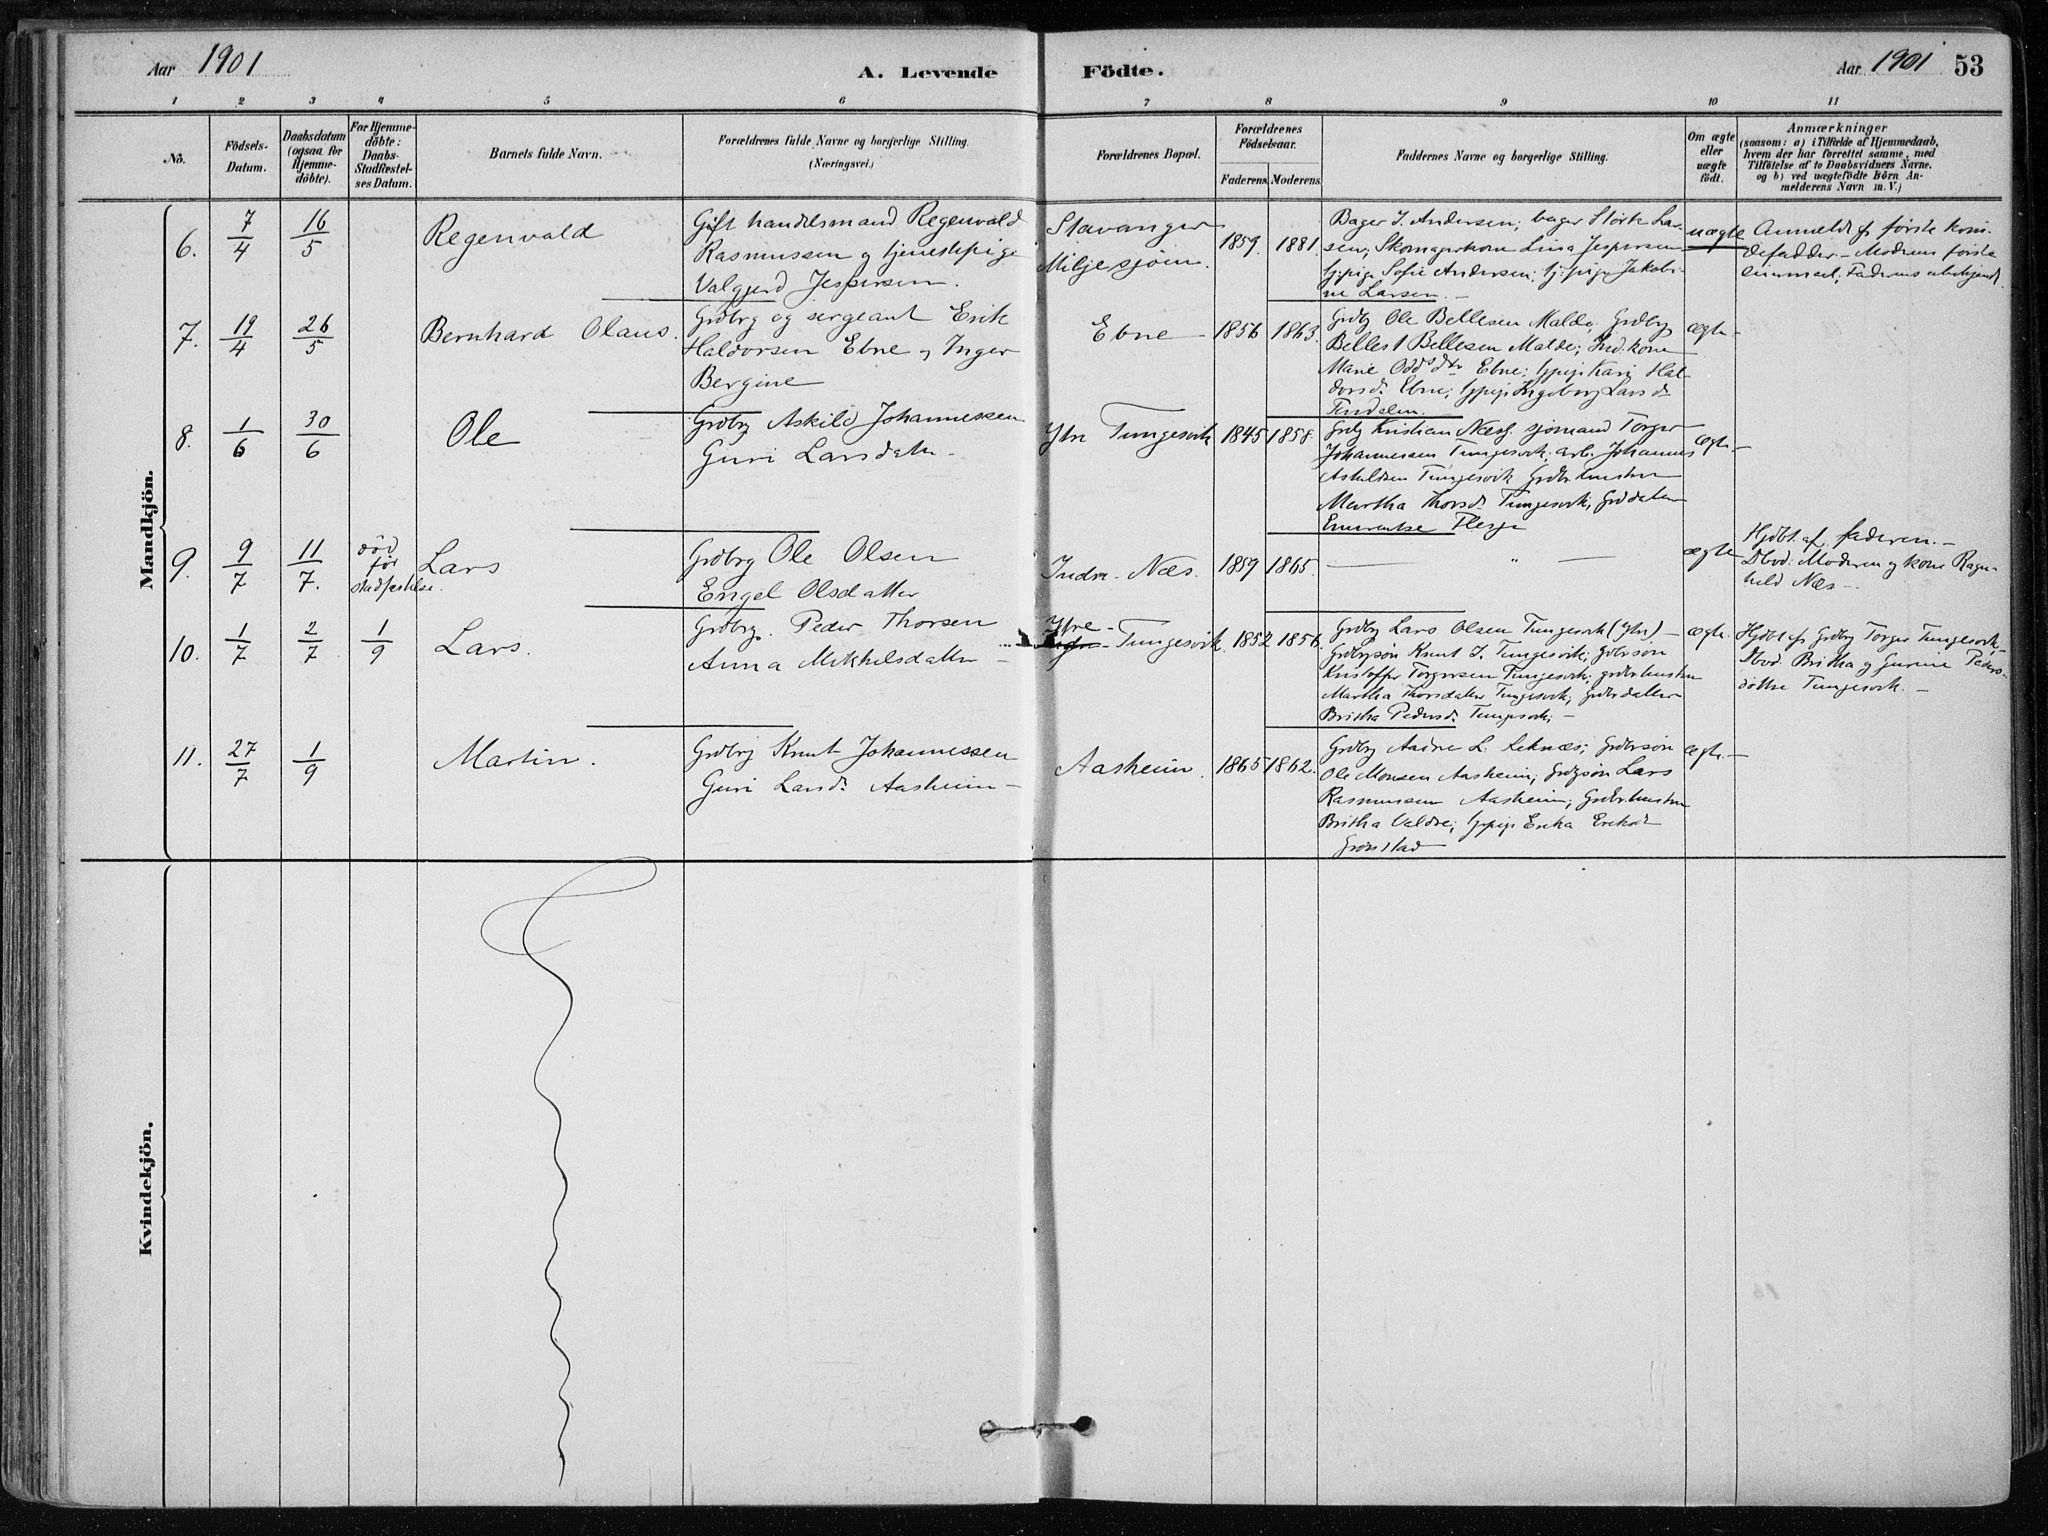 Aar 1901
A. Levende Födte.
Aar 1901 53
1 2 3 4 5 6 7 8 9 10 11
No.
Födsels-
Datum.
Daabsdatum
(ogsaa for
Hjemme-
döbte).
For Hjemme-
döbte:
Daabs-
Stadfæstel-
ses Datum.
Barnets fulde Navn.
Forældrenes fulde Navne og borgerlige Stilling.
(Næringsvei.)
Forældrenes Bopæl.
Forældrenes
Födselsaar.
Faderens. Moderens.
Faddernes Navne og borgerlige Stilling.
Om ægte
eller
uægte
födt.
Anmærkninger
(saasom: a) i Tilfælde af Hjemmedaab,
hvem der har forrettet samme, med
Tilföielse af to Daabsvidners Navne.
og b) ved uægtefödte Börn An-
melderens Navn m. V.)
Mandkjön.
6.
7/4
16/5
Regenvald
Gift handelsmand Regenvald
Rasmussen og tjenestepige
Valgjerd Jespersen.
Stavanger
Miljesjøen.
1859. 1881.
Bager J. Andersen; bager Størk Lar-
sen; Skomagerkone Lina Jespersen
tj.pige Sofie Andersen; tj.pige Jakobi-
ne Larsen. -
uægte
Anmeldt af første kom-
defadder. - Moderens første
leiermaal, Faderens ubekjendt.
7.
19/4
26/5
Bernhard Olaus.
Grdbrg og sergeant Erik
Haldorsen Ebne og Inger
Bergine
Ebne
1856 1863.
Grdbrg Ole Bellesen Malde, Grdbrg
Bellest Bellesen Malde; Ind.kone
Marie Oddsdtr Ebne; tjpige Kari Hal-
dorsd. Ebne; tjpige Ingeborg Larsd.
Tindalen.
ægte -
8.
1/6
30/6
Ole
Grdbrg Askild Johannessen
Guri Larsdatr -
Ytre Tungesvik
1845 1858.
Grdbrg Kristian Næss. sjømand Torger
Johannessen Tungesvik; arb. Johannes
Askildsen Tungesvik Grdbr.hustru
Martha Thorsd. Tungesvik; Grddatter
Emerentse Flesje
ægte -
9.
9/7
11/7.
død
før
stadfæstelse.
Lars
Grdbrg Ole Olsen
Engel Olsdatter
Indre Næs.
1859 1865.
— " —
ægte
Hjdbt. af faderen. -
Dbvd: Moderen og kone Ragn-
hild Næs -
10.
1/7
2/7
1/9
Lars.
Grdbrg. Peder Thorsen
Anna Mikkelsdatter -
Ytre -
Tungesvik.
1852 1856.
Grdbrg Lars Olsen Tungesvik (Ytre) -
Grdbrgsøn Knut J. Tungesvik; grdbrsøn
Kristoffer Torgersen Tungesvik; grdbr.hustru
Martha Thorsdatter Tungesvik; grdbrdatter
Britha Pedersd. Tungesvik; -
ægte.
Hjdbt af Grdbrg Torger Tungesvik,
Dbvd. Britha og Gurine Peders-
døttre Tungesvik. -
11.
27/7
1/9
Martin.
Grdbrg Knut Johannessen
Guri Larsd. Aasheim -
Aasheim.
1865 1862.
Grdbrg Andre L. Leknæs; Grdbrsøn
Ole Monsen Aasheim; Grdbrgsøn Lars
Rasmussen Aasheim; Grdbr.hustru
Britha Valdre; tjpige Erika Eriksd.
Grønstad
ægte. -
Kvindekjön.